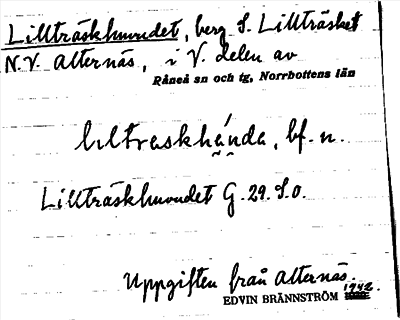 Lillträskhuvudet, berg S. Lillträsket
N.V. Alternäs, i V. delen av
Råneå sn och tg, Norrbottens län
lıltraskhǻnda, bf. n.
Lillträskhuvudet G. 29. S.O.
Uppgiften från Alternäs.
1942.
EDVIN BRÄNNSTRÖM